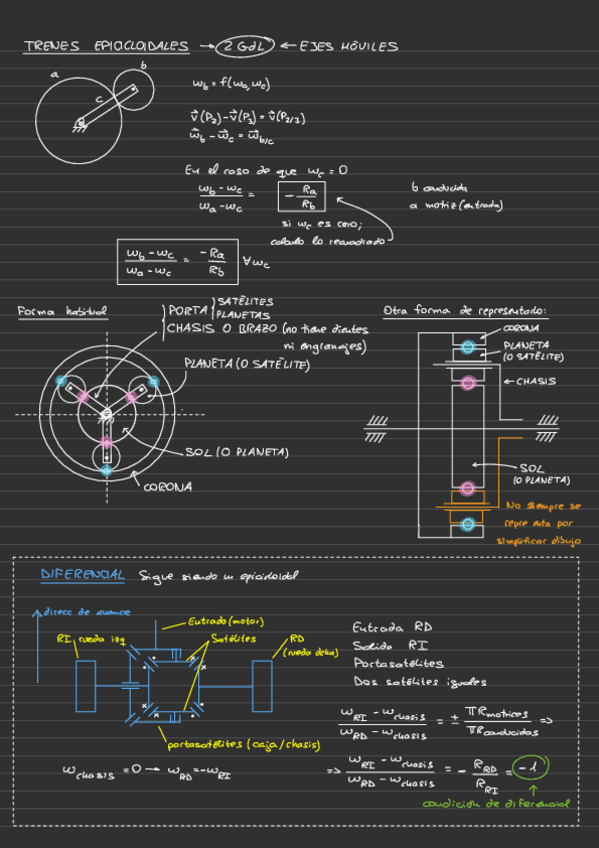 TRENES EPICICLOIDALES → 2 GdL ← EJES MÓVILES
a
b
c
ω_b = f(ω_b, ω_c)
v⃗(P₂) - v⃗(P₃) = v⃗(P₂/₃)
ω⃗_b - ω⃗_c = ω⃗_b/c
En el caso de que ω_c = 0
(ω_b - ω_c)/(ω_a - ω_c) = - R_a/R_b
b conducida
a motriz (entrada)
si ω_c es cero;
calculo lo recuadrado
(ω_b - ω_c)/(ω_a - ω_c) = -R_a/R_b ∀ω_c
Forma habitual
PORTA { SATÉLITES
PLANETAS
CHASIS O BRAZO (no tiene dientes
ni engranajes)
PLANETA (O SATÉLITE)
SOL (O PLANETA)
CORONA
Otra forma de representarlo:
CORONA
PLANETA
(O SATÉLITE)
CHASIS
SOL
(O PLANETA)
No siempre se
repre enta por
simplificar dibujo
DIFERENCIAL Sigue siendo un epicicloidal
direcc de avance
Entrada (motor)
RI rueda izq
Satélites
RD
(rueda dcha)
portasatélites (caja/chasis)
Entrada RD
Salida RI
Portasatélites
Dos satélites iguales
(ω_RI - ω_chasis)/(ω_RD - ω_chasis) = ± πR_motrices/πR_conducidas ⇒
ω_chasis = 0 → ω_RD = -ω_RI
⇒ (ω_RI - ω_chasis)/(ω_RD - ω_chasis) = - R_RD/R_RI = -1
condición de diferencial